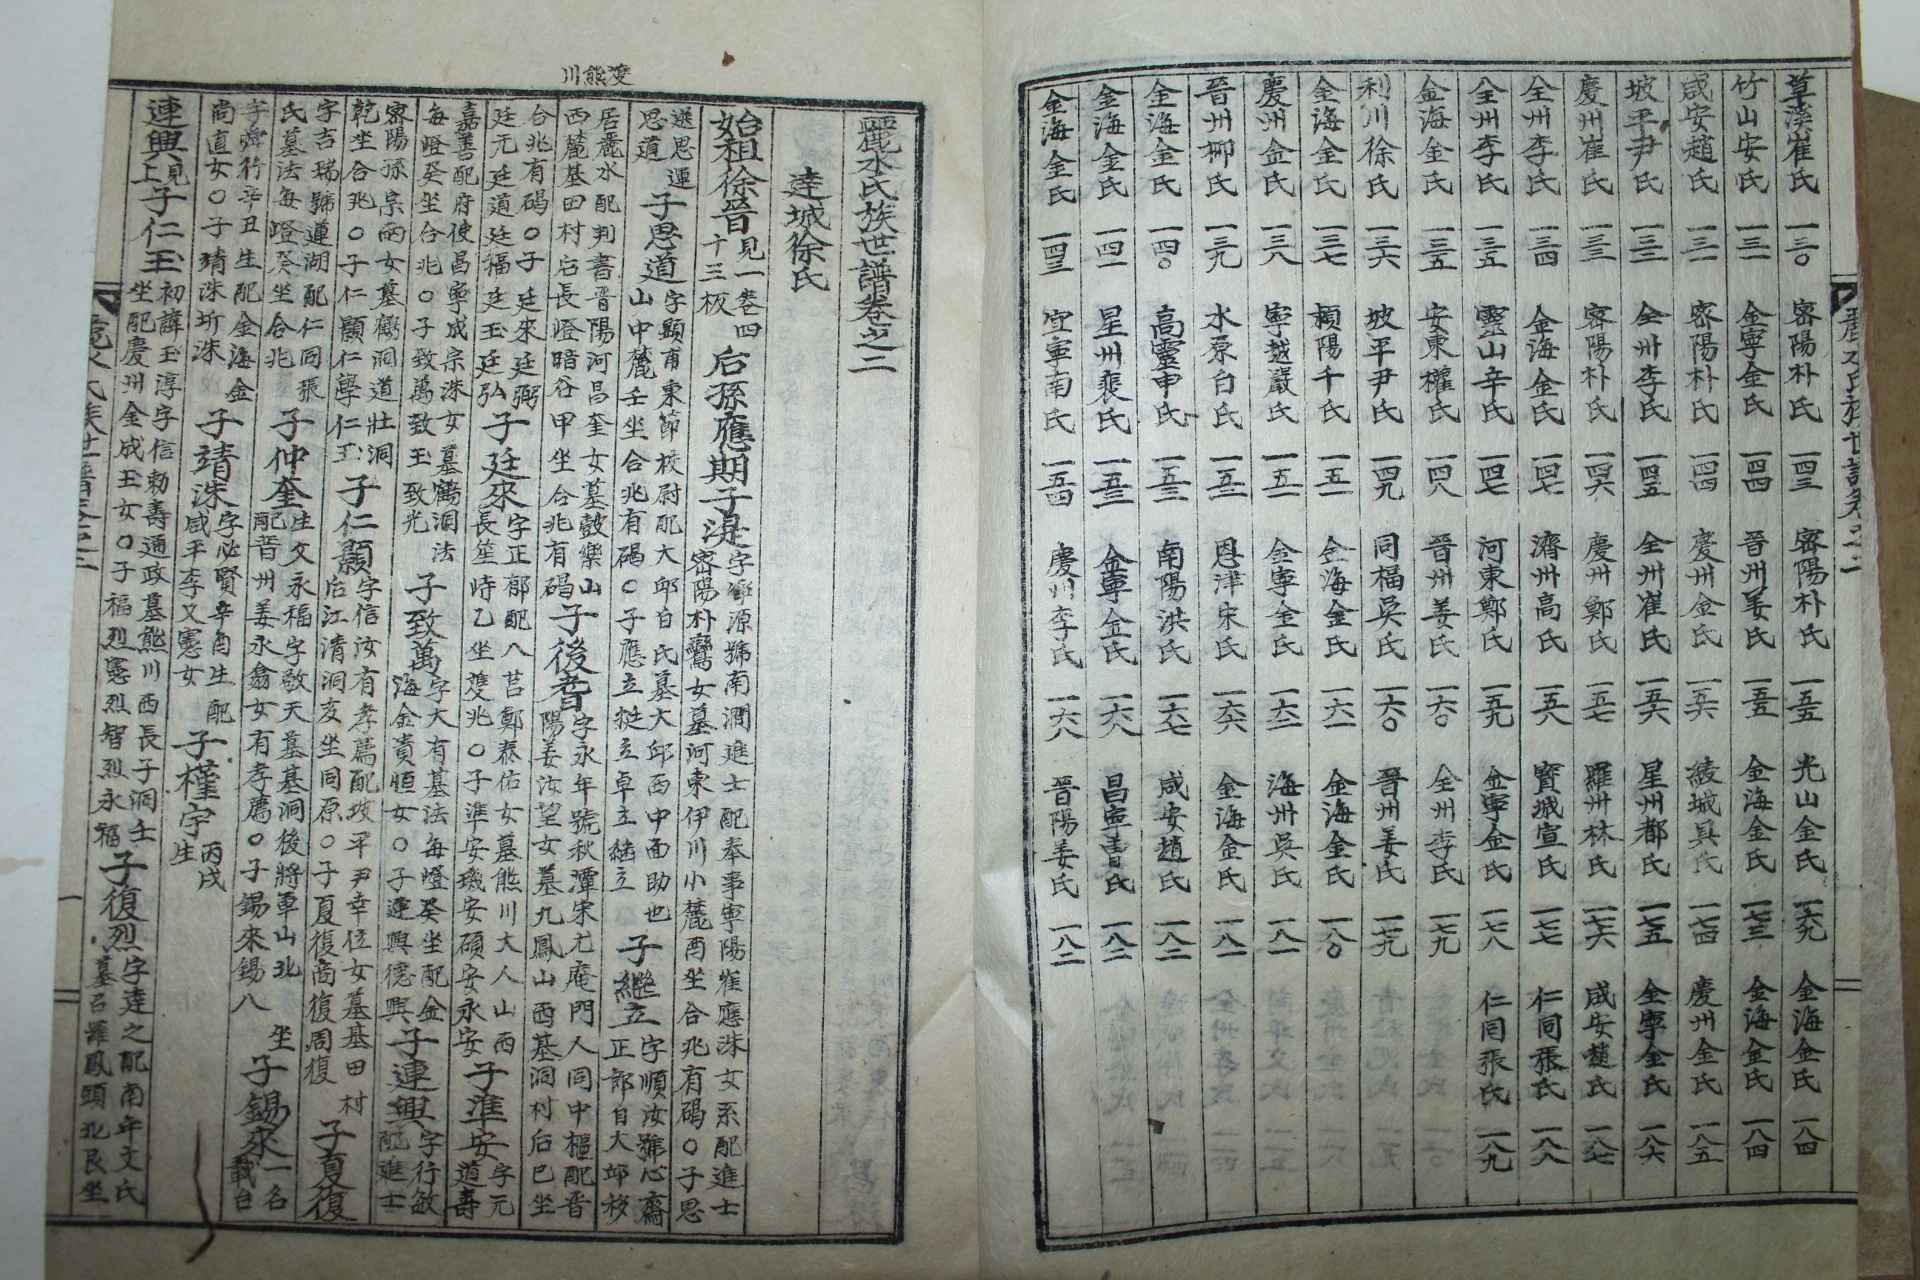 草溪崔氏 一三〇 密陽朴氏 一四三 密陽朴氏 一五五 光山金氏 一六九 金海金氏 一八四
竹山安氏 一三一 金寧金氏 一四四 晉州姜氏 一五五 金海金氏 一七三 金海金氏 一八四
咸安趙氏 一三一 密陽朴氏 一四四 慶州金氏 一五六 綾城具氏 一七四 慶州金氏 一八五
坡平尹氏 一三二 全州李氏 一四五 全州崔氏 一五六 星州都氏 一七五 金寧金氏 一八六
慶州崔氏 一三三 密陽朴氏 一四六 慶州鄭氏 一五七 羅州林氏 一七六 咸安趙氏 一八七
全州李氏 一三四 金海金氏 一四七 濟州高氏 一五八 寶城宣氏 一七七 仁同張氏 一八八
全州李氏 一三五 靈山辛氏 一四七 河東鄭氏 一五九 金寧金氏 一七八 仁同張氏 一八九
金海金氏 一三五 安東權氏 一四八 晉州姜氏 一六〇 全州李氏 一七九
利川徐氏 一三六 坡平尹氏 一四九 同福吳氏 一六〇 晉州姜氏 一七九
金海金氏 一三七 潁陽千氏 一五一 金海金氏 一六一 金海金氏 一八〇
慶州金氏 一三八 寧越嚴氏 一五一 金寧金氏 一六二 海州吳氏 一八一
晉州柳氏 一三九 水原白氏 一五二 恩津宋氏 一六六 金海金氏 一八一
金海金氏 一四〇 高靈申氏 一五三 南陽洪氏 一六七 咸安趙氏 一八二
金海金氏 一四一 星州裵氏 一五三 金寧金氏 一六八 昌寧曺氏 一八二
金海金氏 一四三 宜寧南氏 一五四 慶州李氏 一六八 晉陽姜氏 一八二
麗水氏族世譜卷之二
達城徐氏
始祖徐晉 見一卷四十三板 后孫應期子湜 字 源號南澗進士配奉事寧陽崔應洙女系配進士密陽朴鸞女墓河東伊川小麓酉坐合兆有碣〇子思
遜思運思道 子思道 字顯甫東節校尉配大邱白氏墓大邱西中面助也山中麓壬坐合兆有碣〇子應立挺立卓立繼立 子繼立 字順汝號心齋正郎自大邱移
居麗水配判書晉陽河昌奎女墓鼓樂山西麓基田村后長燈暗谷甲坐合兆有碣 子後耉 字永年號秋潭宋尤庵門人同中樞配晋陽姜汝望女墓九鳳山酉基洞村后巳坐
合兆有碣〇子廷來廷弼廷元廷道廷福廷玉廷弘 子廷來 字正郁配八莒鄭泰佑女墓熊川大人山西長笙峙乙坐雙兆〇子準安璣安碩安永安 子準安 字元道壽
嘉善配府使昌寧成宗洙女墓鶴洞法每燈癸坐合兆〇子致萬致玉致光 子致萬 字大有墓法每燈癸坐配金海金貴恒女〇子連興德興 子連興 字行敏配進士
密陽孫宗兩女墓鶴洞道壯洞乾坐合兆〇子仁顯仁學仁玉 子仁顯 字信汝有孝薦配坡平尹幸位女墓基田村后江清洞亥坐同原〇子夏復商復周復 子夏復
字吉瑞號蓮湖配仁同張氏墓法每燈癸坐合兆 子仲奎 生文永福字敬天墓基洞後將軍山北坐配晋州姜永翕女有孝薦〇子錫來錫八 子錫來 一名載台
字舜行辛丑生配金海金尚直女〇子靖洙圻洙 子靖洙 字必賢辛角生配咸平李又憲女 子權 字 丙戌生
連興 見上 子仁玉 初諱玉淳字信勅壽通政墓熊川西長子洞壬坐配慶州金成玉女〇子福烈憲烈智烈永福 子復烈 字達之配南年文氏墓召羅鳳頭北艮坐
雙熊川
麗水氏族世譜卷之二
一